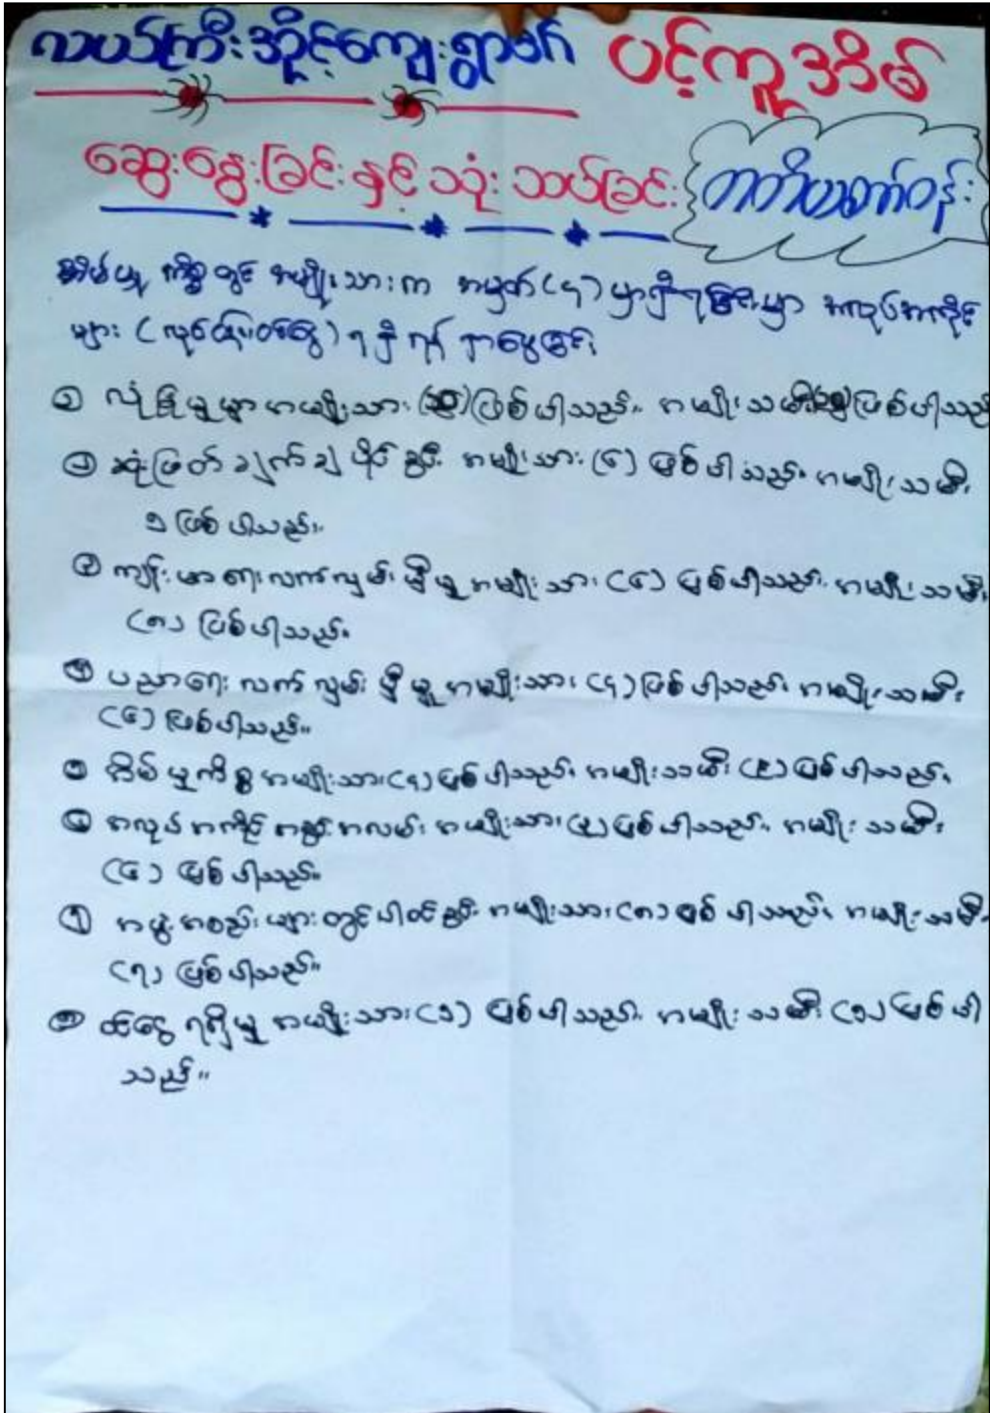 လယ်ကြီးအိုင့်ကျေးရွာ ပင့်ကူအိမ်
ဆွေးနွေးခြင်းနှင့် သုံးသပ်ခြင်း
တတိယတော်ဝန်း
အိမ်မှု ကိစ္စတွင် အမျိုးသားက အမှတ် (၄) မှာရှိရခြင်းမှာ အလုပ်အကိုင်
များ ( လုပ်
၁ လုံခြုံမှုမှာ အမျိုးသား ဖြစ်ပါသည်။ အမျိုးသမီး ဖြစ်ပါသည်
၂ ဆုံးဖြတ်ချက်ချ ပိုင်ခွင့် အမျိုးသား (၆) ဖြစ်ပါသည်။ အမျိုးသမီး
၁ ဖြစ်ပါသည်။
၃ ကျန်းမာရေးလက်လှမ်းမှီမှု အမျိုးသား (၆) ဖြစ်ပါသည်။ အမျိုးသမီး
(၈) ဖြစ်ပါသည်။
၄ ပညာရေး လက်လှမ်းမှီမှု အမျိုးသား (၄) ဖြစ်ပါသည်။ အမျိုးသမီး
(၆) ဖြစ်ပါသည်။
၅ အိမ်မှုကိစ္စ အမျိုးသား (၄) ဖြစ်ပါသည်။ အမျိုးသမီး (၉) ဖြစ်ပါသည်။
၆ အလုပ်အကိုင်အခွင့်အလမ်း အမျိုးသား ဖြစ်ပါသည်။ အမျိုးသမီး
(၆) ဖြစ်ပါသည်။
၇ အဖွဲ့အစည်းများတွင်ပါဝင်ခွင့် အမျိုးသား (၈) ဖြစ်ပါသည်။ အမျိုးသမီး
(၇) ဖြစ်ပါသည်။
၈ ဝင်ငွေရရှိမှု အမျိုးသား (၁) ဖြစ်ပါသည်။ အမျိုးသမီး (၁) ဖြစ်ပါ
သည်။